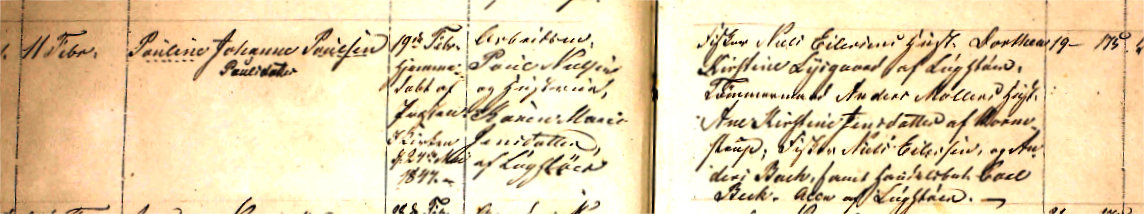 11 Febr. Pauline Johanne Poulsen
Poulsdatter
19de Febr.
Hjemme-
døbt af
Præsten.
i Kirken
d. 24de Mai
1847.
Arbeidsm.
Poul Nielsen
og Hustrue,
Karen Marie
Jensdatter,
af Løgstöer
Fisker Niels Eilersens Hust. Dorthea
Kirstine Lÿsgaard af Lögstöer.
Tömmermand Anders Möllers Hust.
Ane Kirstine Jensdatter af Korne-
strup, Fisker Niels Eilersen, og An-
ders Bach, samt Carl
Beck. Alle af Lögstöer.
19 — 175.